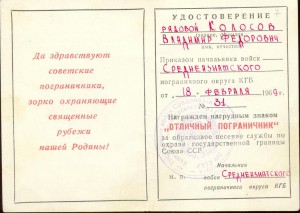 Да здравствуют
советские
пограничники,
зорко охраняющие
священные
рубежи
нашей Родины!
УДОСТОВЕРЕНИЕ
РЯДОВОЙ КОЛОСОВ
ВЛАДИМИР ФЕДОРОВИЧ.
имя, отчество
Приказом начальника войск
СРЕДНЕАЗИАТСКОГО
пограничного округа КГБ
от „18" ФЕВРАЛЯ 1969 г.
№ 31
Награжден нагрудным знаком
"ОТЛИЧНЫЙ ПОГРАНИЧНИК"
за образцовое несение службы по
охране государственной границы
Союза ССР
Начальник
м. п. войск СРЕДНЕАЗИАТСКОГО
пограничного округа КГБ